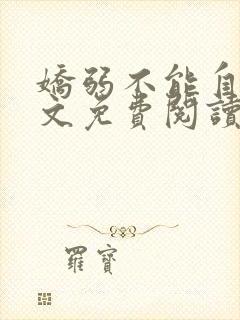 嬌弱不能自
文免費閱讀
羅寶